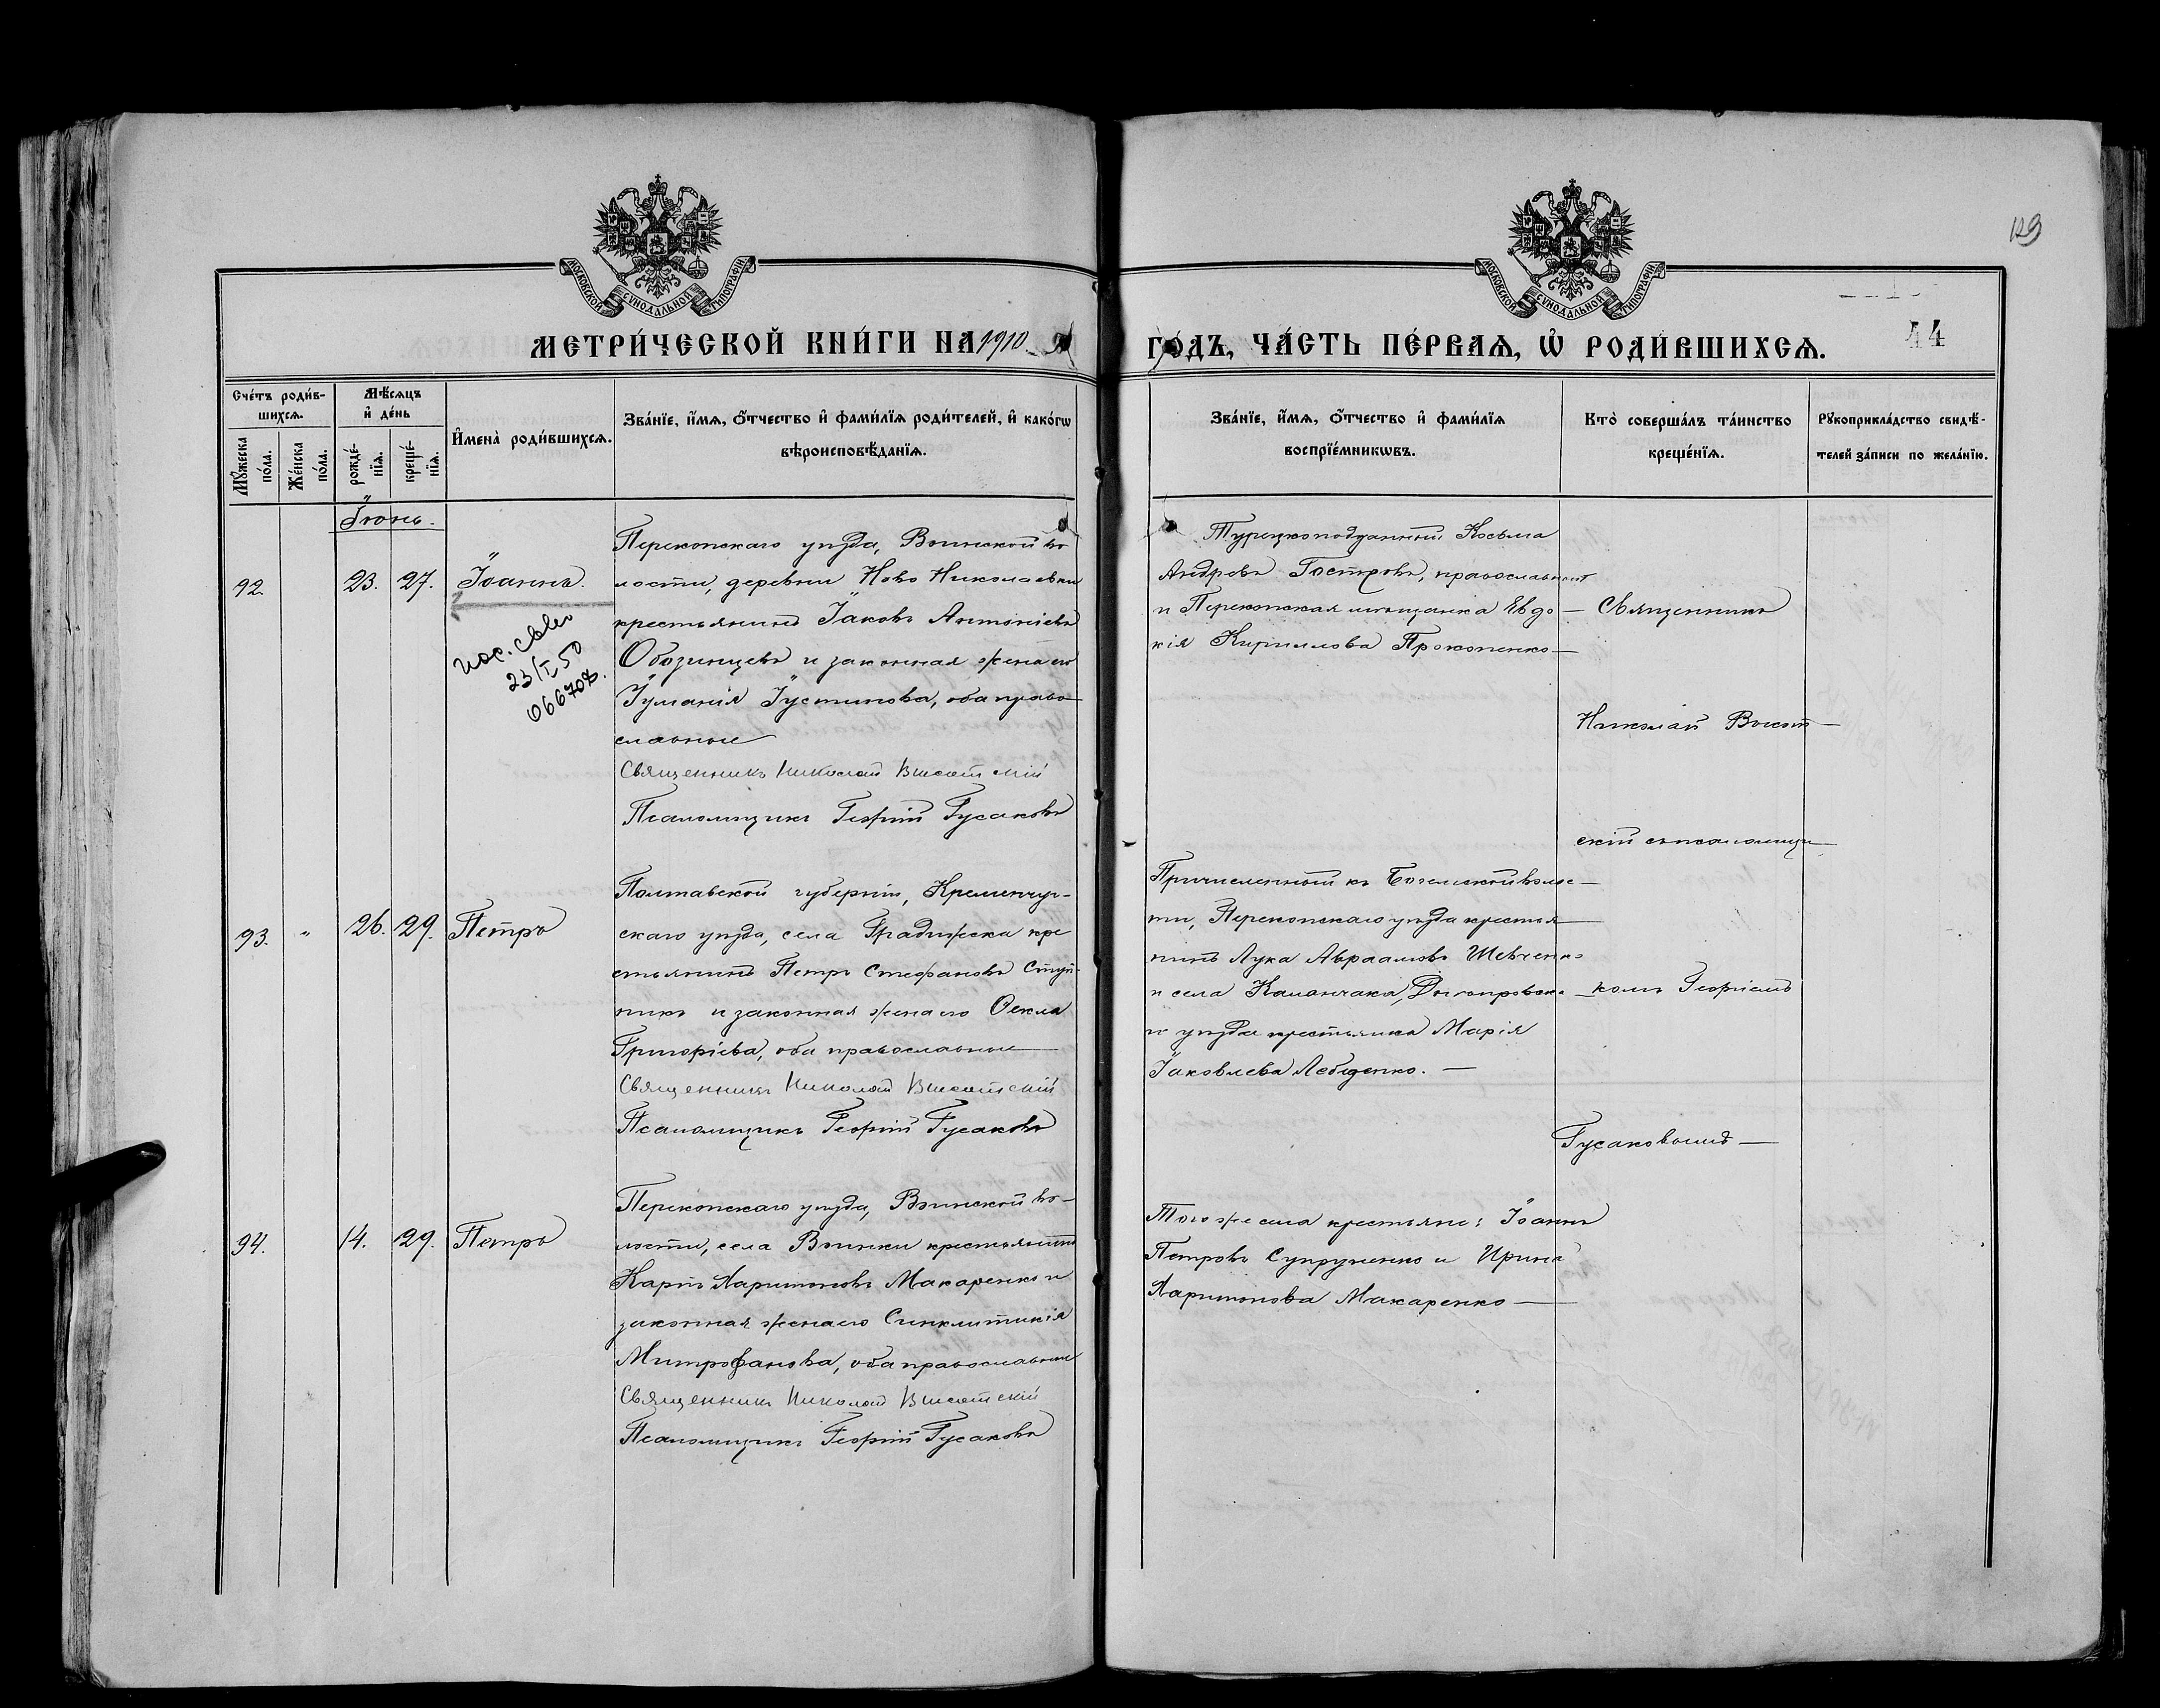 129
МОСКОВСКОЙ СѴНОДАЛЬНОЙ ТИПОГРАФІИ
МОСКОВСКОЙ СѴНОДАЛЬНОЙ ТИПОГРАФІИ
МЕТРИ́ЧЕСКОЙ КНИ́ГИ НА 1910
ГО́ДЪ, ЧА́СТЬ ПЕ́РВАѦ, Ѡ҆ РОДИ́ВШИХСѦ.
44
Сче́тъ роди́в-
шихсѧ.
Мꙋ́жеска по́ла.
Же́нска по́ла.
Мѣ́сѧцъ
и҆ де́нь
рожде́-
нїѧ.
креще́-
нїѧ.
И҆мена̀ роди́вшихсѧ.
Зва́нїе, и҆́мѧ, ѻ҆́тчество и҆ фами́лїѧ роди́телей, и҆ како́гѡ
вѣроисповѣ́данїѧ.
Зва́нїе, и҆́мѧ, ѻ҆́тчество и҆ фами́лїѧ
воспрїе́мникѡвъ.
Кто̀ соверша́лъ та́инство
креще́нїѧ.
Рꙋкоприкла́дство свидѣ́-
телей за́писи по жела́нїю.
Іюнь.
92. 23. 27. Іоаннъ.
23/I 50
066707.
Перекопскаго уѣзда, Воинской во
лости, деревни Ново Николаевки
крестьянинъ Іаковъ Антоніевъ
Обозинцевъ и законная жена его
Іуліанія Іустинова, оба право
славные
Священникъ Николай Высотскій
Псаломщикъ Георгій Гусаковъ
Турецкоподданный Косьма
Андреевъ Гостровъ, православный
и Перекопская мѣщанка Евдо
кія Кириллова Прокопенко
Священникъ
Николай Высот
скій съ псаломщи
комъ Георгіемъ
Гусаковымъ
93. " 26. 29. Петръ
Полтавской губерніи, Кременчуг-
скаго уѣзда, села Градижска кре
стьянинъ Петръ Стефановъ Ступ-
никъ и законная жена его Ѳекла
Григоріева, оба православные
Священникъ Николай Высотскій
Псаломщикъ Георгій Гусаковъ
Причисленный къ Богемской волос
ти, Перекопскаго уѣзда крестья
нинъ Лука Авраамовъ Шевченко
и села Каланчака, Днѣпровска
го уѣзда крестьянка Марія
Іаковлева Лебеденко.
94. 14. 29. Петръ
Перекопскаго уѣзда, Воинской во-
лости, села Воинки крестьянинъ
Карпъ Харитоновъ Макаренко и
законная жена его Синклитикія
Митрофанова, оба православные
Священникъ Николай Высотскій
Псаломщикъ Георгій Гусаковъ
Того же села крестьяне: Іоаннъ
Петровъ Супруненко и Ирина
Харитонова Макаренко